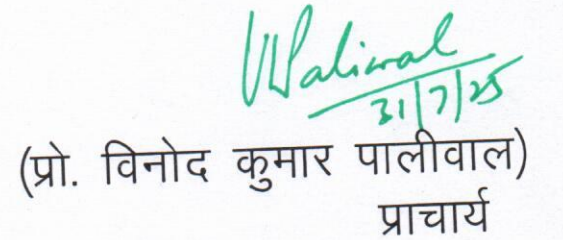 VPaliwal
31/7/25
(प्रो. विनोद कुमार पालीवाल)
प्राचार्य